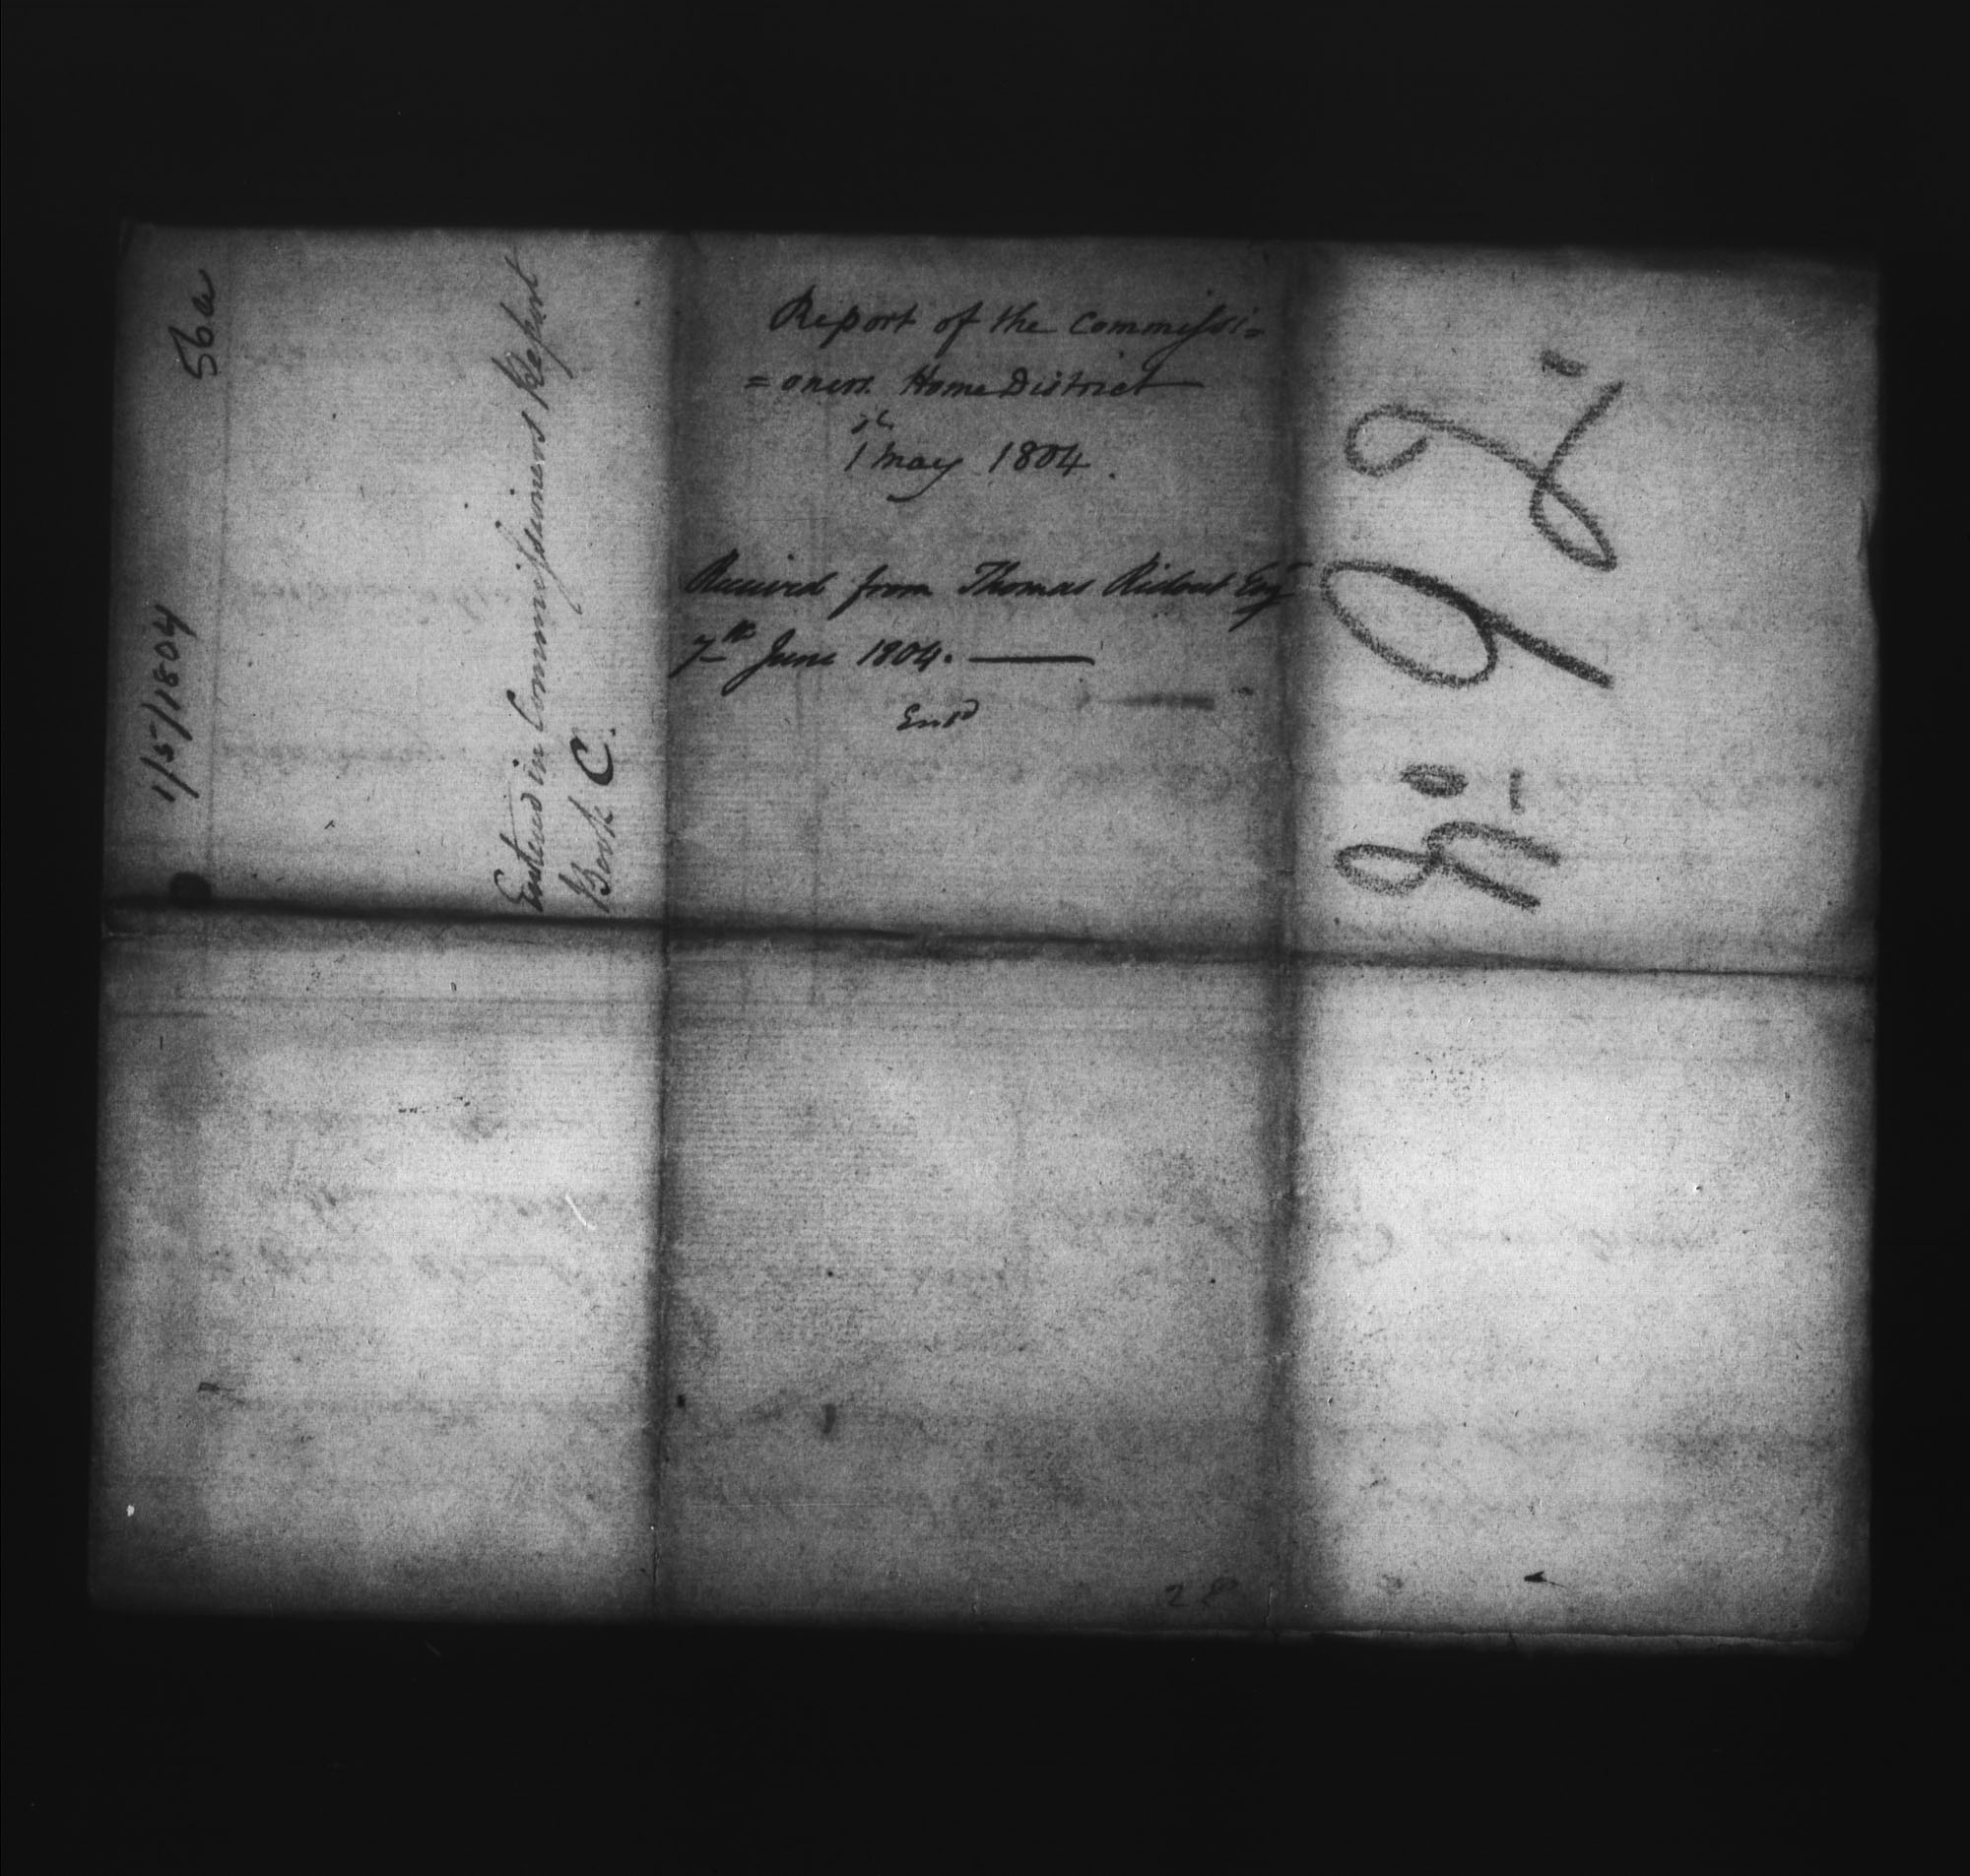 56a
1/5/1804
Entered in Commissioners Report
Book C.
Report of the Commissi=
=oners. Home District
1st May 1804.
Received from Thomas Ridout Esqr
7th June 1804.
Entd
No 92
28